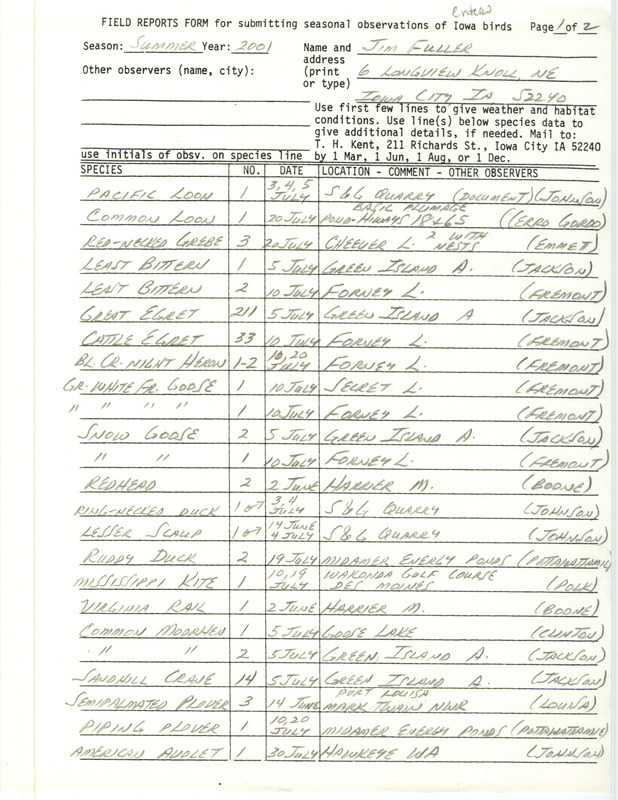 entered
FIELD REPORTS FORM for submitting seasonal observations of Iowa birds Page 1 of 2
Season: Summer Year: 2001 Name and Jim Fuller
address
Other observers (name, city): (print 6 Longview Knoll, NE
or type)
Iowa City IA 52240
Use first few lines to give weather and habitat
conditions. Use line(s) below species data to
give additional details, if needed. Mail to:
T. H. Kent, 211 Richards St., Iowa City IA 52240
use initials of obsv. on species line by 1 Mar, 1 Jun, 1 Aug, or 1 Dec.
SPECIES NO. DATE LOCATION - COMMENT - OTHER OBSERVERS
Pacific Loon 1 3, 4, 5 July S&G Quarry (Document) (Johnson)
Basic Plumage
Common Loon 1 20 July Pond-Hiways 18 & 65 (Cerro Gordo)
Red-necked Grebe 3 20 July Cheever L. 2 with nests (Emmet)
Least Bittern 1 5 July Green Island A. (Jackson)
Least Bittern 2 10 July Forney L. (Fremont)
Great Egret 211 5 July Green Island A (Jackson)
Cattle Egret 33 10 July Forney L. (Fremont)
Bl. Cr. Night Heron 1-2 10, 20 July Forney L. (Fremont)
Gr. White Fr. Goose 1 10 July Secret L. (Fremont)
" " " " 1 10 July Forney L. (Fremont)
Snow Goose 2 5 July Green Island A. (Jackson)
" " 1 10 July Forney L. (Fremont)
Redhead 2 2 June Harrier M. (Boone)
Ring-necked Duck 1 ♂ 3, 4 July S&G Quarry (Johnson)
Lesser Scaup 1 ♂ 14 June 4 July S&G Quarry (Johnson)
Ruddy Duck 2 19 July MidAmer Energy Ponds (Pottawattamie)
Mississippi Kite 1 10, 19 July Wakonda Golf Course
Des Moines (Polk)
Virginia Rail 1 2 June Harrier M. (Boone)
Common Moorhen 1 5 July Goose Lake (Clinton)
" " 2 5 July Green Island A. (Jackson)
Sandhill Crane 14 5 July Green Island A. (Jackson)
Port Louisa
Semipalmated Plover 3 14 June Mark Twain NWR (Louisa)
Piping Plover 1 10, 20 July MidAmer Energy Ponds (Pottawattamie)
American Avocet 1 30 July Hawkeye WA (Johnson)